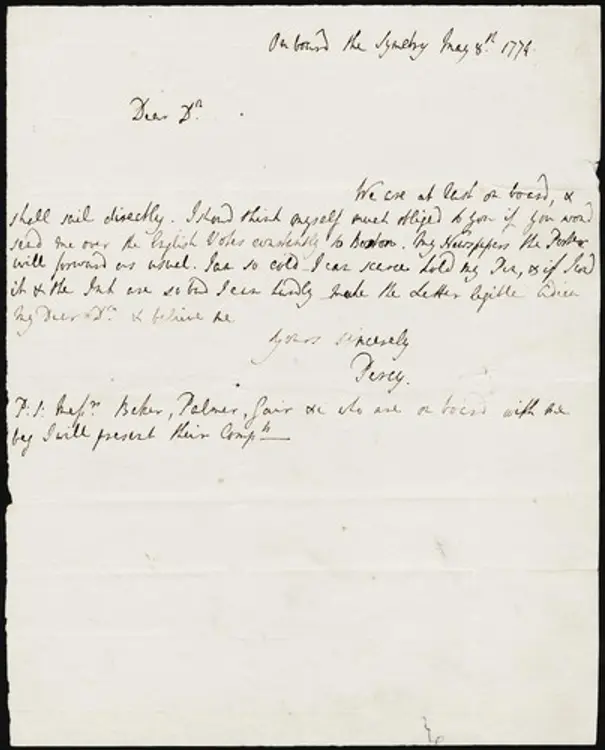 On board the Symetry May 8th 1774
Dear Dr.
We are at last on board, &
shall sail directly. I shoud think myself much obliged to you if you woud
send me over the English Votes constantly to Boston. My Newspapers the
will forward as usual. I am so cold I can scarce hold my Pen, & if
it & the Ink are so bad I can hardly make the Letter legible Adieu
My Dear Dr. & believe me
yours sincerely
Percy.
P:S: Messrs. Baker, Palmer, Gair &c who are on board with me
beg I will present their Compts